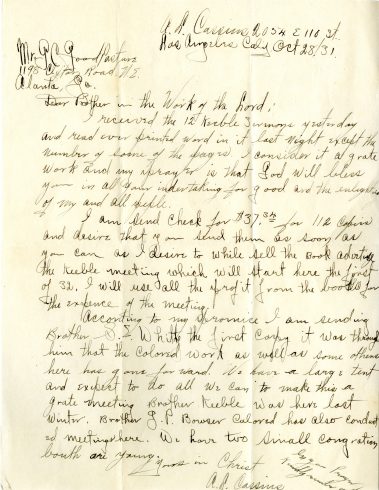 A. R. Cassius 2054 E 110 St.
Los Angeles Calif Oct 28/31
Mr. B. C. Goodpasture
1198 Road N.E.
Atlanta, Ga.
Dear Brother in the Work of the Lord;
I reserved the 12 Keeble Sermons yesterday
and read over printed word in it last night except the
number of some of the pages. I consider it a grate
work and my prayer is that God will bless
you in all your undertaking for good and the
of my and all
I am send check for $37.34 for 112 Copies
and desire that you send them as soon as
you can as I desire to while sell the Book advertise
the Keeble meeting which will start here the first
of 32. I will use all the profit from the books for
the expence of the meeting.
According to my promice I am sending
Brother S. E. Witty the first copy it was through
him that the colored work as well as some others
here has gone forward. We have a large tent
and expect to do all we can to make this a
grate meeting Brother Keeble was here last
winter. Brother G. P. Bowser Colored has also conduct
ed meetings here. We have two small congration
bouth are young.
yours in Christ
A. R. Cassius